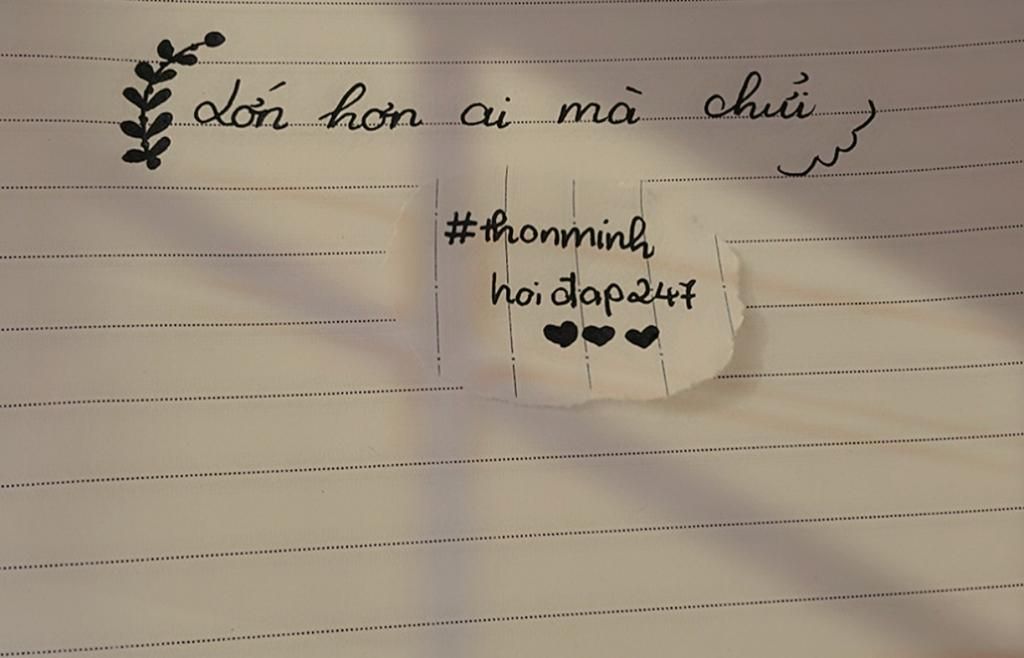 Lớn hơn ai mà chửi
#thonminh
hoi đap247